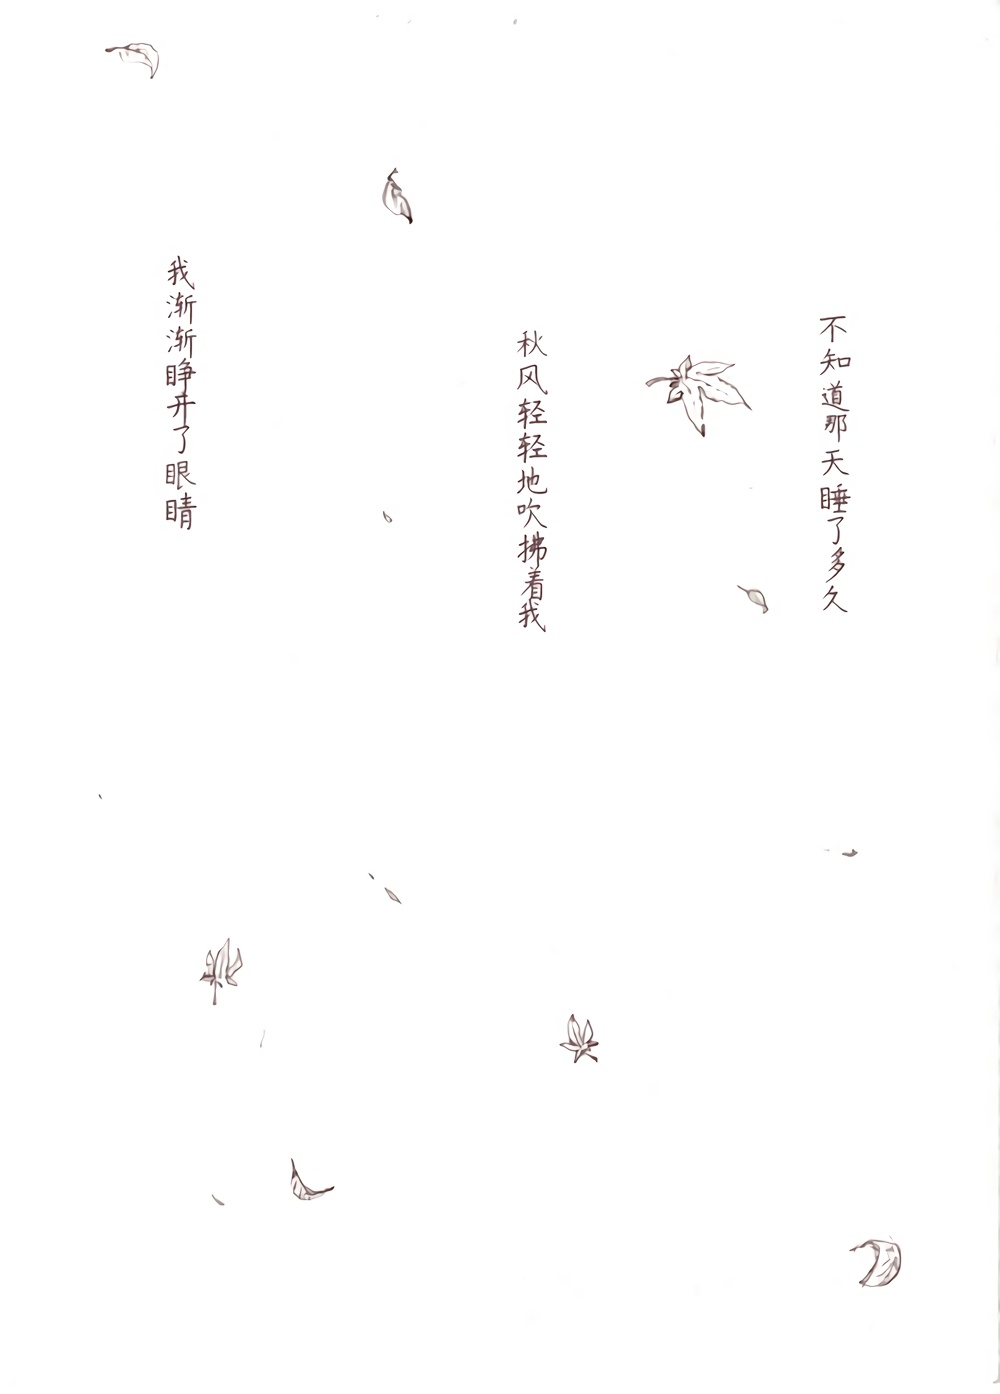 不知道那天睡了多久
秋风轻轻地吹拂着我
我渐渐睁开了眼睛